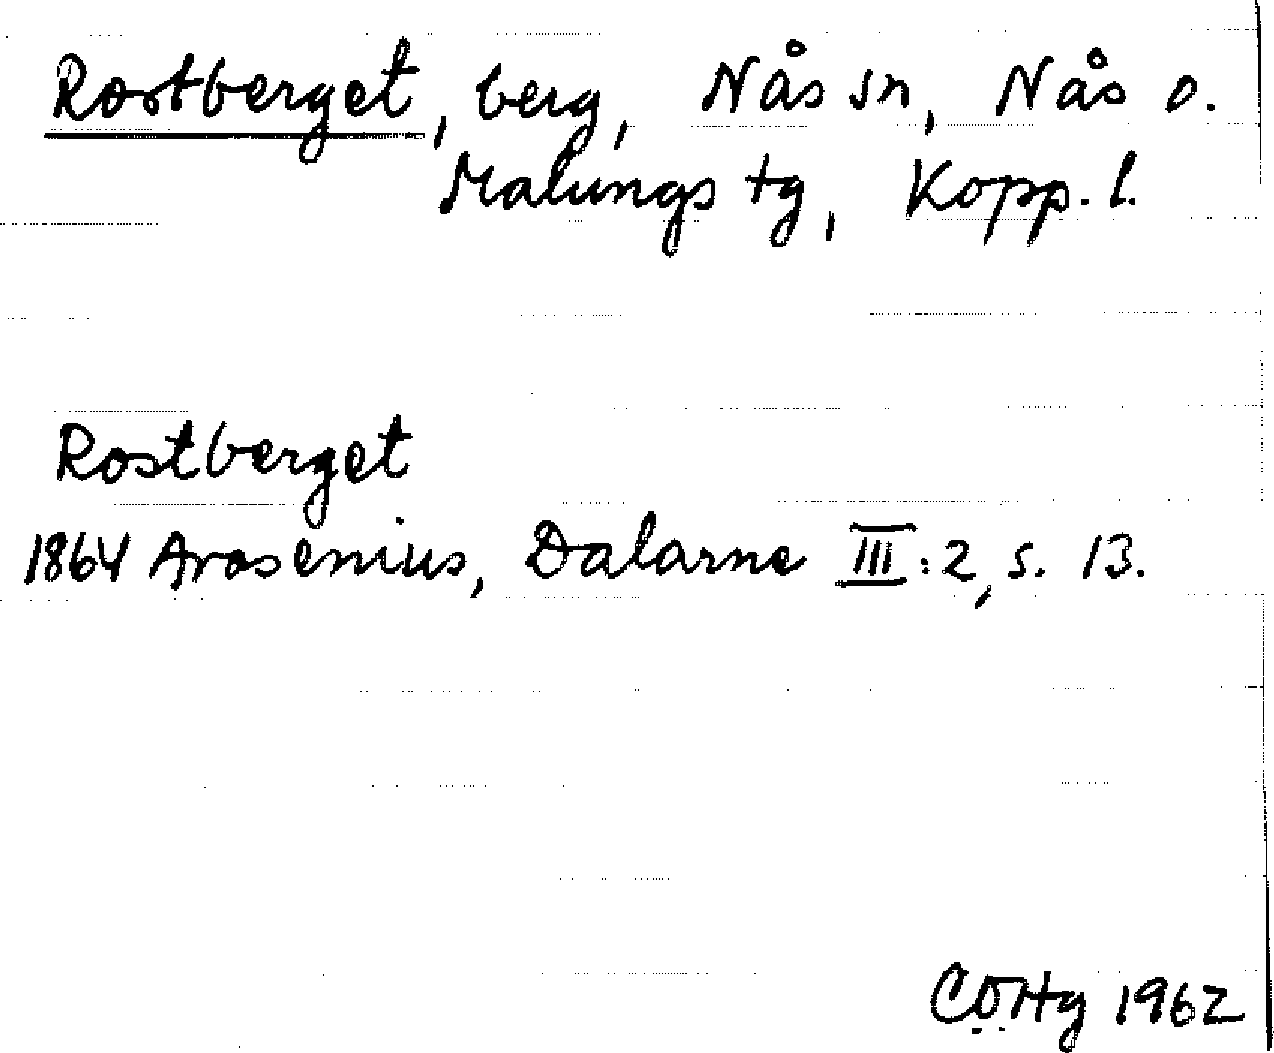 Rostberget, berg, Nås sn, Nås o.
Malungs tg, Kopp. l.
Rostberget
1864 Arosenius, Dalarne III:2, s. 13.
1962